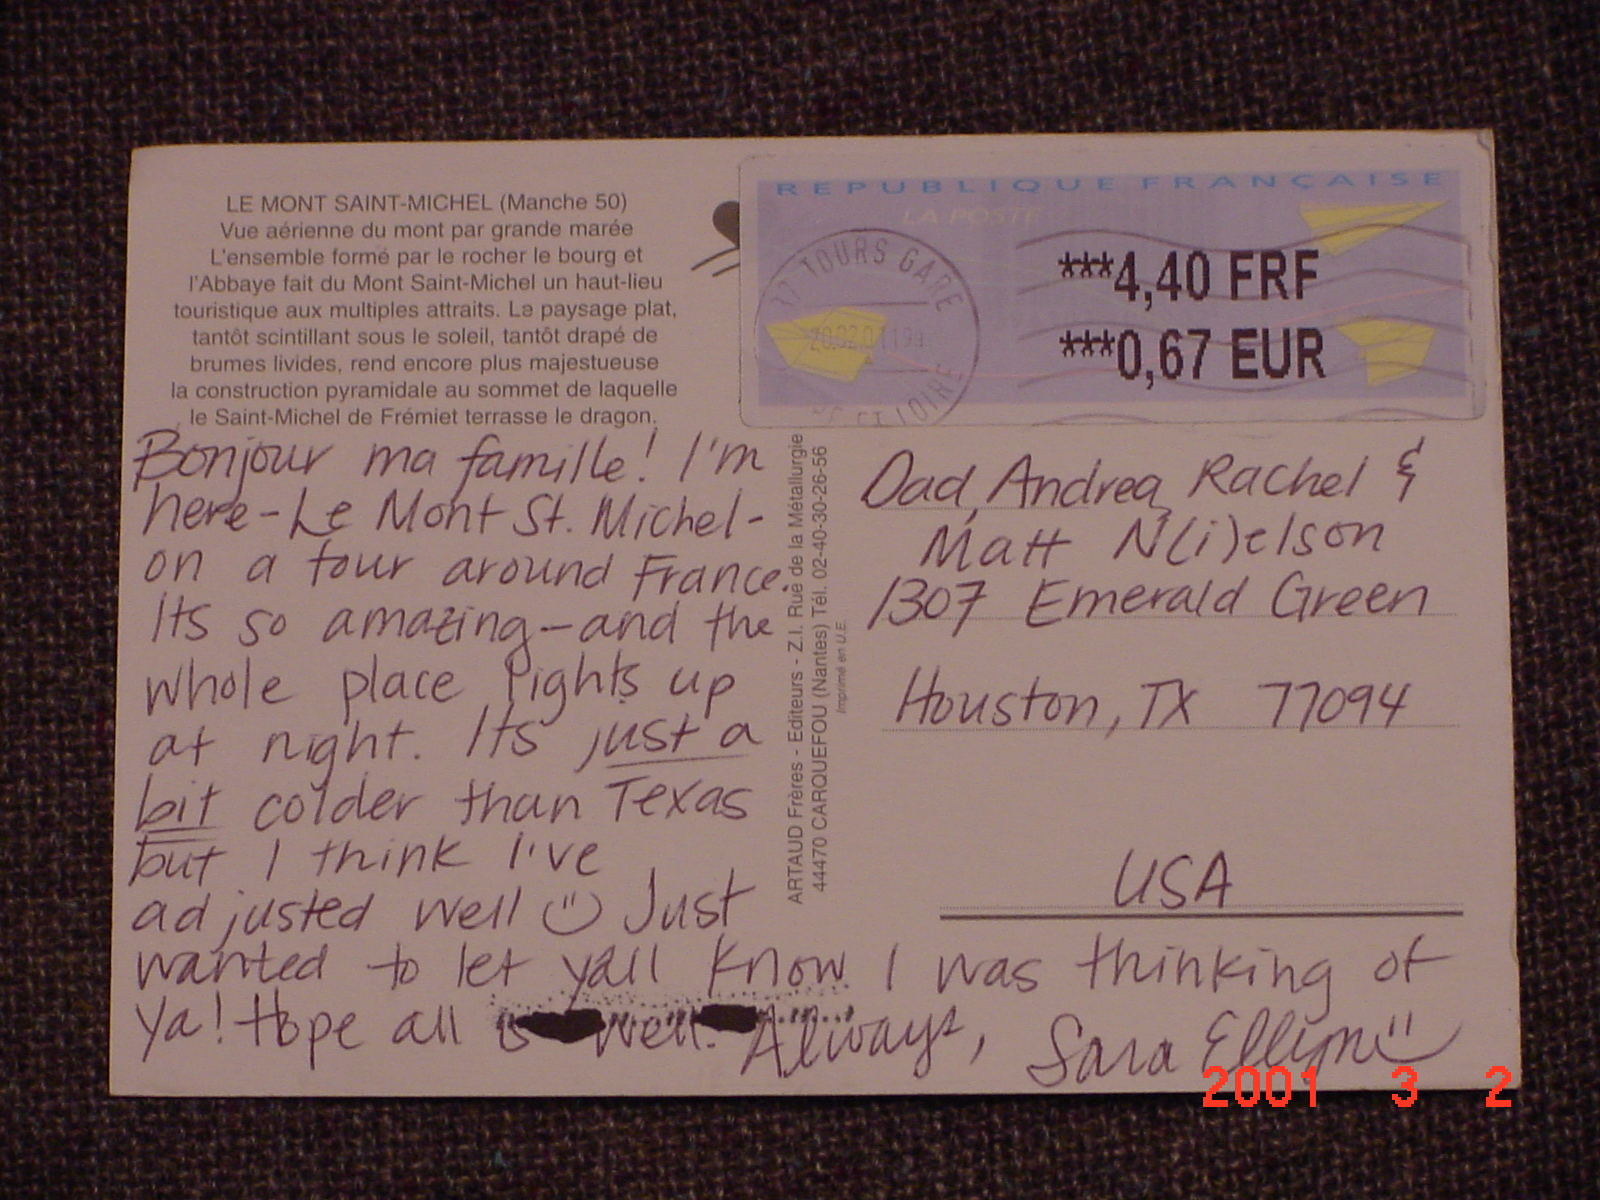 LE MONT SAINT-MICHEL (Manche 50)
Vue aérienne du mont par grande marée
L'ensemble formé par le rocher le bourg et
l'Abbaye fait du Mont Saint-Michel un haut-lieu
touristique aux multiples attraits. Le paysage plat,
tantôt scintillant sous le soleil, tantôt drapé de
brumes livides, rend encore plus majestueuse
la construction pyramidale au sommet de laquelle
le Saint-Michel de Frémiet terrasse le dragon.
REPUBLIQUE FRANÇAISE
LA POSTE
***4,40 FRF
***0,67 EUR
37 TOURS GARE
ET LOIRE
Bonjour ma famille! I'm
here - Le Mont St. Michel -
on a tour around France.
Its so amazing - and the
whole place lights up
at night. Its just a
bit colder than Texas
but I think I've
adjusted well Just
wanted to let yall know I was thinking of
ya! Hope all is well. Always, Sara Ellyn
ARTAUD Frères - Editeurs - Z.I. Rue de la Métallurgie
44470 CARQUEFOU (Nantes) Tél. 02-40-30-26-56
Imprimé en U.E.
Dad, Andrea, Rachel &
Matt N(i)elson
1307 Emerald Green
Houston, TX 77094
USA
2001 3 2